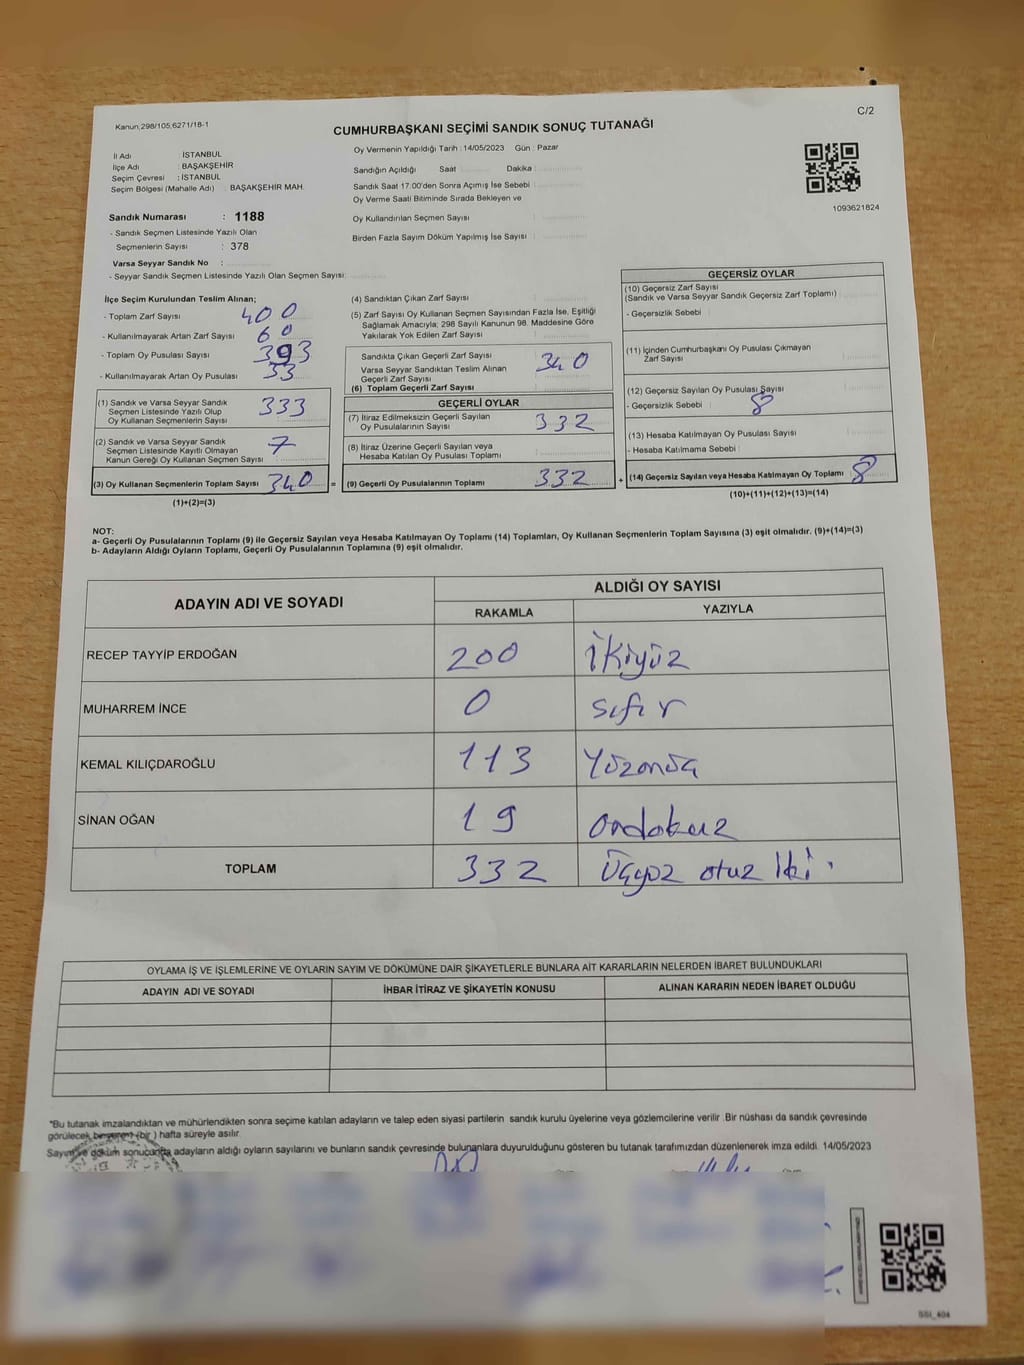 Kanun,298/105,6271/18-1
C/2
CUMHURBAŞKANI SEÇİMİ SANDIK SONUÇ TUTANAĞI
İl Adı : İSTANBUL
İlçe Adı : BAŞAKŞEHİR
Seçim Çevresi : İSTANBUL
Seçim Bölgesi (Mahalle Adı) : BAŞAKŞEHİR MAH.
Sandık Numarası : 1188
- Sandık Seçmen Listesinde Yazılı Olan
Seçmenlerin Sayısı : 378
Varsa Seyyar Sandık No :
- Seyyar Sandık Seçmen Listesinde Yazılı Olan Seçmen Sayısı:
Oy Vermenin Yapıldığı Tarih : 14/05/2023 Gün : Pazar
Sandığın Açıldığı Saat Dakika
Sandık Saat 17.00'den Sonra Açımış İse Sebebi
Oy Verme Saati Bitiminde Sırada Bekleyen ve
Oy Kullandırılan Seçmen Sayısı :
Birden Fazla Sayım Döküm Yapılmış İse Sayısı :
1093621824
İlçe Seçim Kurulundan Teslim Alınan;
- Toplam Zarf Sayısı 400
- Kullanılmayarak Artan Zarf Sayısı 60
- Toplam Oy Pusulası Sayısı 393
- Kullanılmayarak Artan Oy Pusulası 33
(1) Sandık ve Varsa Seyyar Sandık
Seçmen Listesinde Yazılı Olup
Oy Kullanan Seçmenlerin Sayısı 333
(2) Sandık ve Varsa Seyyar Sandık
Seçmen Listesinde Kayıtlı Olmayan
Kanun Gereği Oy Kullanan Seçmen Sayısı 7
(3) Oy Kullanan Seçmenlerin Toplam Sayısı 340 =
(1)+(2)=(3)
(4) Sandıktan Çıkan Zarf Sayısı
(5) Zarf Sayısı Oy Kullanan Seçmen Sayısından Fazla İse, Eşitliği
Sağlamak Amacıyla; 298 Sayılı Kanunun 98. Maddesine Göre
Yakılarak Yok Edilen Zarf Sayısı
Sandıkta Çıkan Geçerli Zarf Sayısı 340
Varsa Seyyar Sandıktan Teslim Alınan
Geçerli Zarf Sayısı
(6) Toplam Geçerli Zarf Sayısı
GEÇERLİ OYLAR
(7) İtiraz Edilmeksizin Geçerli Sayılan
Oy Pusulalarının Sayısı 332
(8) İtiraz Üzerine Geçerli Sayılan veya
Hesaba Katılan Oy Pusulası Toplamı
(9) Geçerli Oy Pusulalarının Toplamı 332 +
GEÇERSİZ OYLAR
(10) Geçersiz Zarf Sayısı
(Sandık ve Varsa Seyyar Sandık Geçersiz Zarf Toplamı)
- Geçersizlik Sebebi
(11) İçinden Cumhurbaşkanı Oy Pusulası Çıkmayan
Zarf Sayısı
(12) Geçersiz Sayılan Oy Pusulası Sayısı
- Geçersizlik Sebebi 8
(13) Hesaba Katılmayan Oy Pusulası Sayısı
- Hesaba Katılmama Sebebi
(14) Geçersiz Sayılan veya Hesaba Katılmayan Oy Toplamı 8
(10)+(11)+(12)+(13)=(14)
NOT:
a- Geçerli Oy Pusulalarının Toplamı (9) ile Geçersiz Sayılan veya Hesaba Katılmayan Oy Toplamı (14) Toplamları, Oy Kullanan Seçmenlerin Toplam Sayısına (3) eşit olmalıdır. (9)+(14)=(3)
b- Adayların Aldığı Oyların Toplamı, Geçerli Oy Pusulalarının Toplamına (9) eşit olmalıdır.
ADAYIN ADI VE SOYADI
ALDIĞI OY SAYISI
RAKAMLA YAZIYLA
RECEP TAYYİP ERDOĞAN 200 ikiyüz
MUHARREM İNCE 0 sıfır
KEMAL KILIÇDAROĞLU 113 Yüzonüç
SİNAN OĞAN 19 ondokuz
TOPLAM 332 Üçyüz otuz iki
OYLAMA İŞ VE İŞLEMLERİNE VE OYLARIN SAYIM VE DÖKÜMÜNE DAİR ŞİKAYETLERLE BUNLARA AİT KARARLARIN NELERDEN İBARET BULUNDUKLARI
ADAYIN ADI VE SOYADI İHBAR İTİRAZ VE ŞİKAYETİN KONUSU ALINAN KARARIN NEDEN İBARET OLDUĞU
"Bu tutanak imzalandıktan ve mühürlendikten sonra seçime katılan adayların ve talep eden siyasi partilerin sandık kurulu üyelerine veya gözlemcilerine verilir .Bir nüshası da sandık çevresinde
görülecek bir yere 1 (bir ) hafta süreyle asılır.
Sayım ve döküm sonucunda adayların aldığı oyların sayılarını ve bunların sandık çevresinde bulunanlara duyurulduğunu gösteren bu tutanak tarafımızdan düzenlenerek imza edildi. 14/05/2023
SSI_404